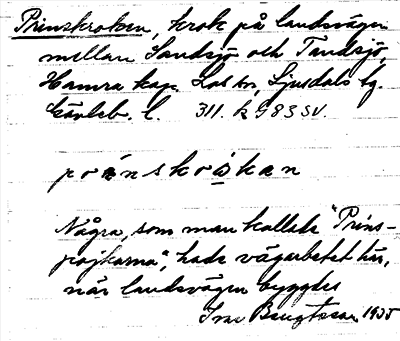 Prinskroken, krok på landsvägen
mellan Sandsjö och Tandsjö,
Hamra kap. Los sn, Ljusdals tg.
Gävleb. l. 311. k 983 SV.
Några, som man kallade "Prins-
pojkarna", hade vägarbetet här,
när landsvägen byggdes
Bengtsson 1935